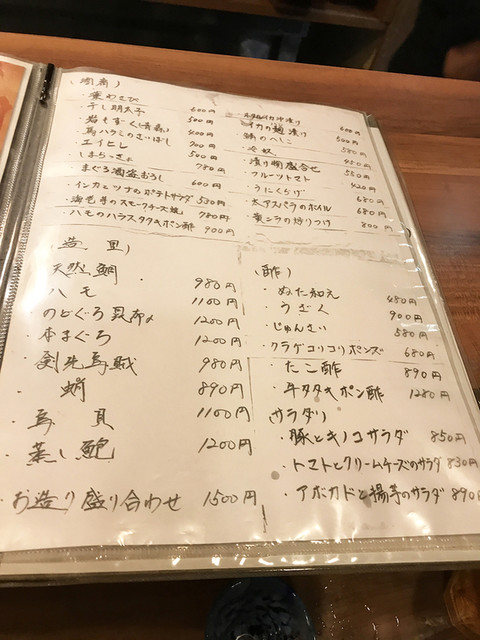 ・葉わさび 600円
・干し明太子 500円
・岩もずく(青森)
・エイヒレ
・しまらっきょ 500円
・まぐろ酒盗おろし 780円
・インカとツナのポテトサラダ 600円
スモークチーズ 580円
980円
・ハモのハラスタタキポン酢 900円
イカの麹漬け 600円
・鯖のへしこ 500円
・冷奴 580円
・漬け物盛合せ 450円
・フルーツトマト 550円
・うにくらげ 420円
・太アスパラのホイル 680円
680円
800円
(造里)
天然鯛 980円
・ハモ 1100円
・のどぐろ昆布〆 1200円
・本まぐろ 1200円
・剣先烏賊 980円
・蛸 890円
・鳥貝 1100円
・蒸し鮑 1200円
・お造り盛り合わせ 1500円
(酢)
・ぬた和え 480円
・うざく 900円
・じゅんさい 580円
・クラゲコリコリポンズ 680円
・たこ酢 890円
・牛タタキポン酢 1280円
(サラダ)
・豚とキノコサラダ 850円
・トマトとクリームチーズのサラダ 830円
・アボカドと揚芋のサラダ 890円